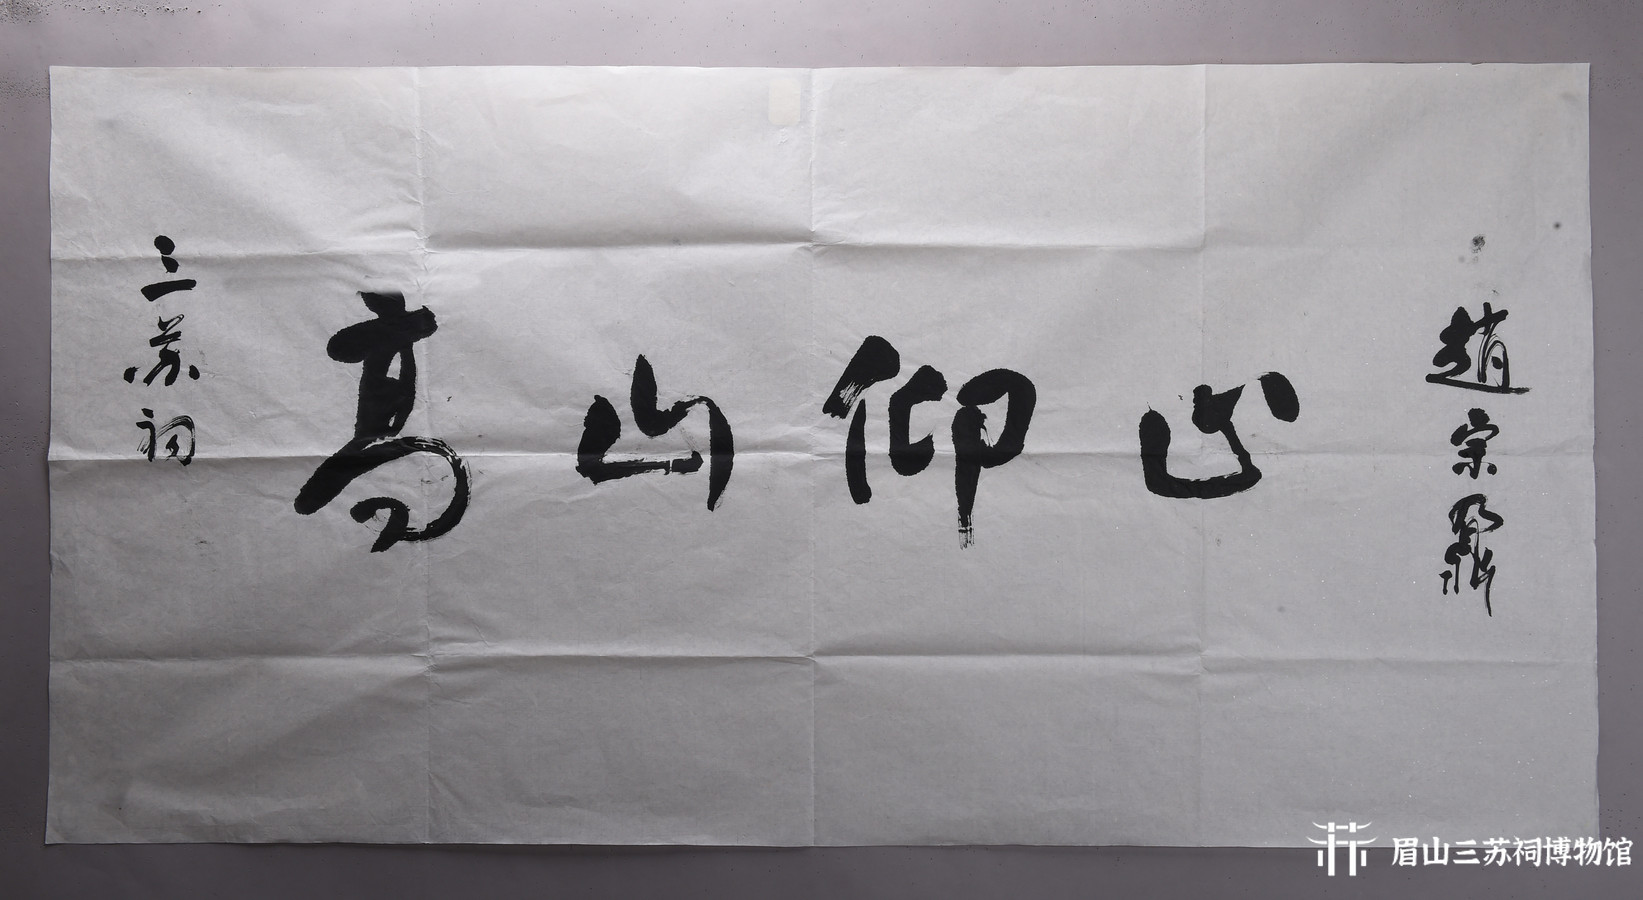 三苏祠
高山仰止
趙宗鼐
眉山三苏祠博物馆